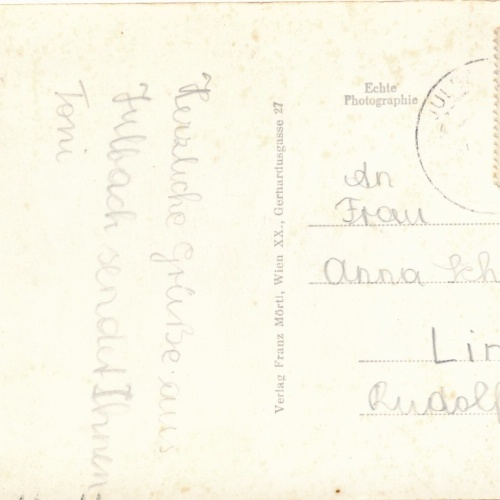 Herzliche Grüße aus
Julbach sendet Ihnen
Toni
Verlag Franz Mörtl, Wien XX., Gerhardusgasse 27
Echte
Photographie
JUL
An
Frau
Anna
Lin
Rudolf